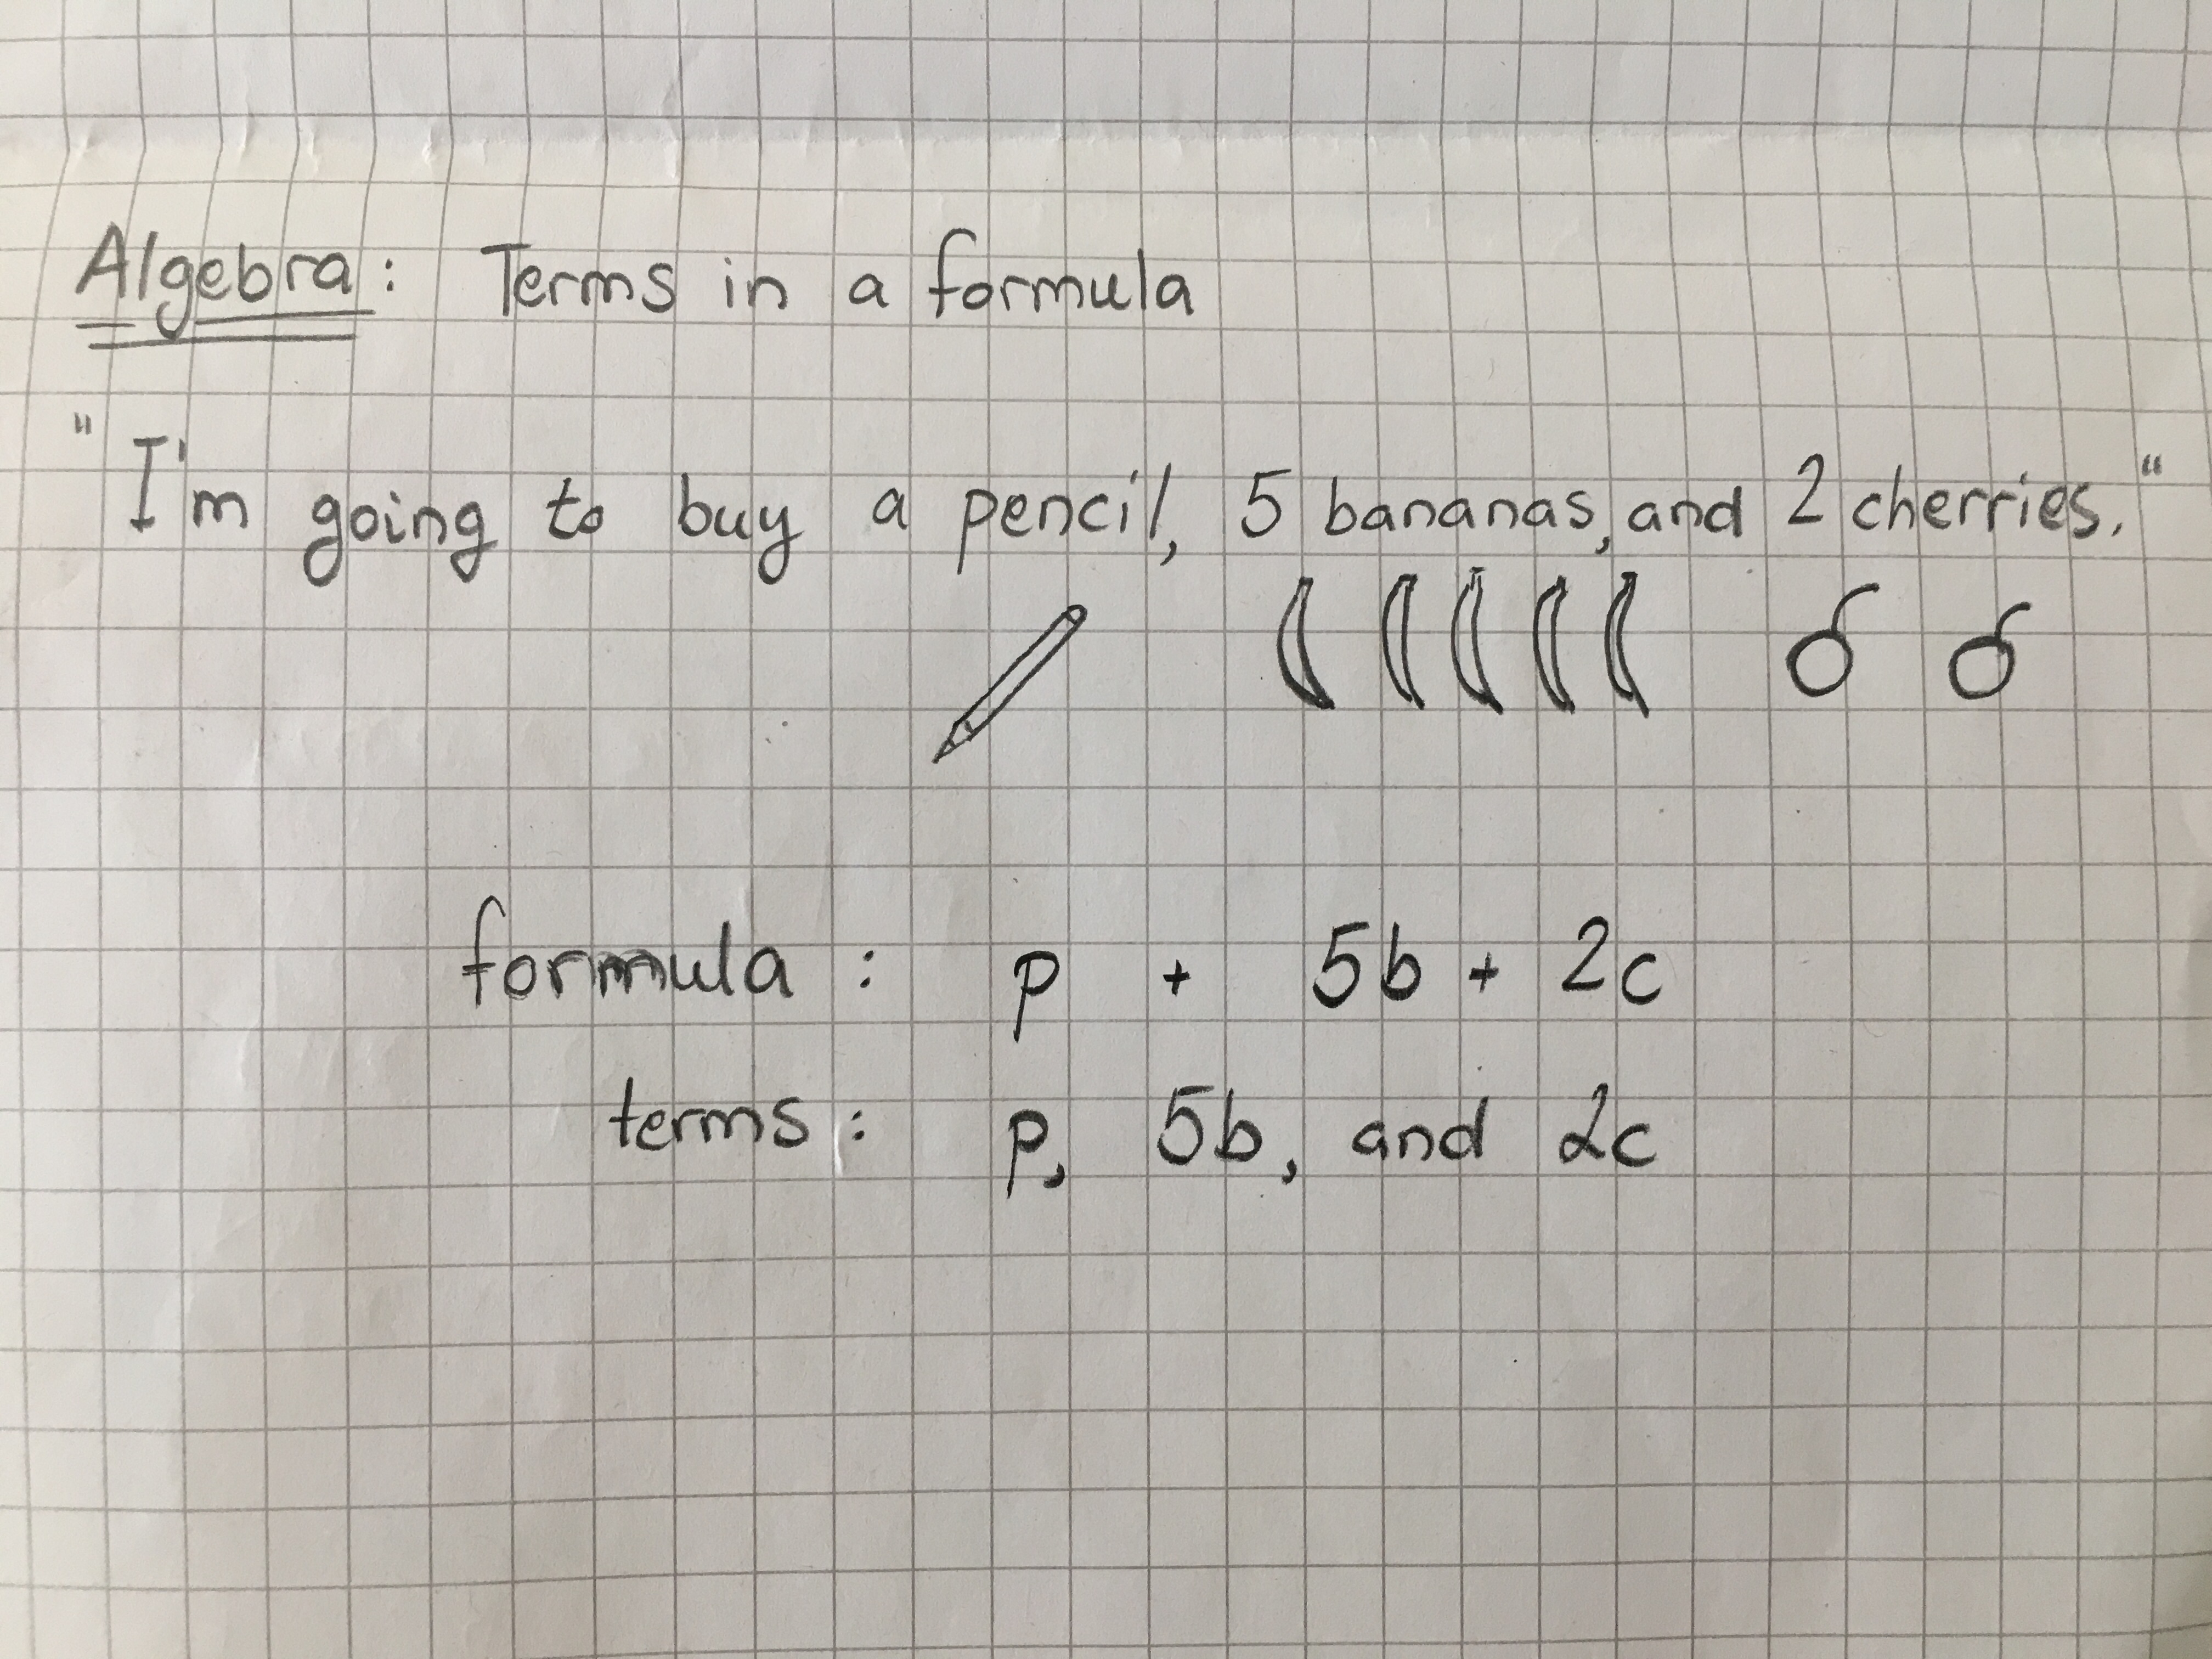 Algebra: Terms in a formula
"I'm going to buy a pencil, 5 bananas, and 2 cherries."
formula: p + 5b + 2c
terms: p, 5b, and 2c